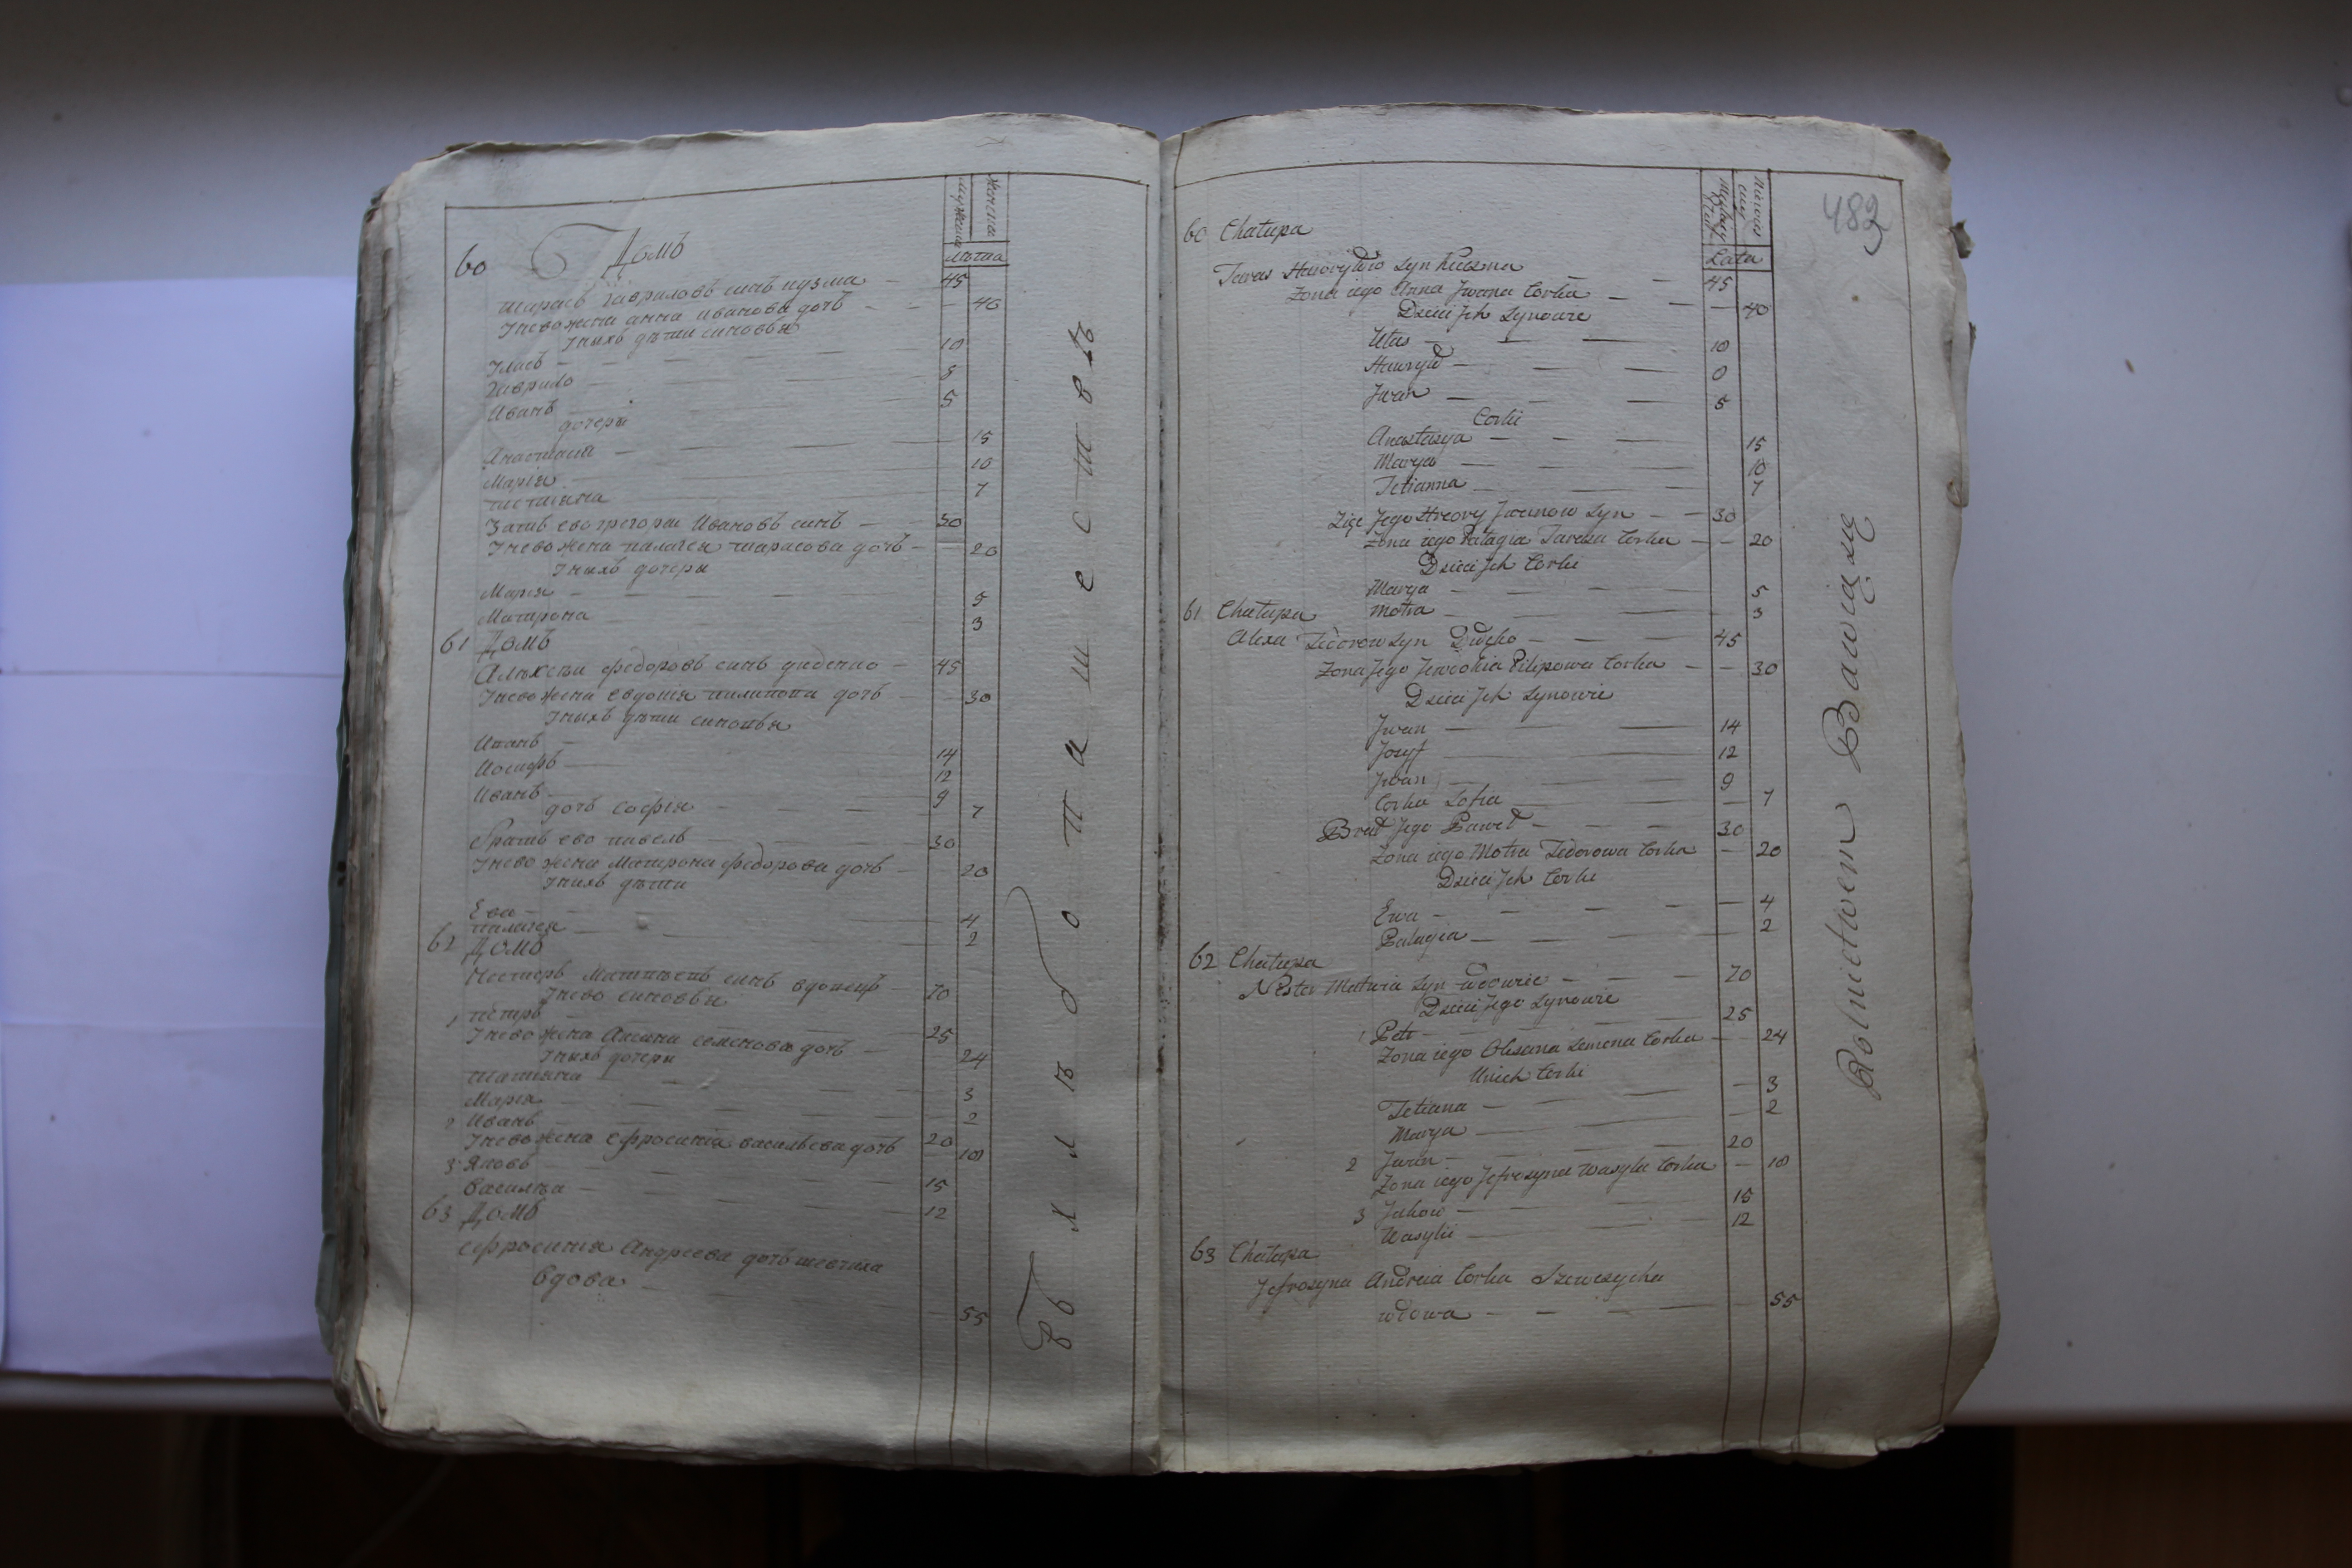 мужеска
женска
лѣта
60 Домъ
Тарасъ Гавриловъ синъ кузма — 45
Унево жена анна иванова дочь — 40
Унихъ дѣти синовья
Уласъ — 10
Гаврило — 8
Иванъ — 5
дочери
Анастасия — 15
Мария — 10
татияна — 7
Зять ево григори Ивановъ синъ — 30
Унево жена палагея тарасова дочь — 20
Унихъ дочери
Мария — 5
Матрона — 3
61 Домъ
Алексѣи федоровъ синъ диденко — 45
Унево жена евдокия пилипова дочь — 30
Унихъ дѣти синовья
Иванъ — 14
Иосифъ — 12
Иванъ — 9
дочь софия — 7
братъ ево павелъ — 30
Унево жена Матрона федорова дочь — 20
Унихъ дѣти
Ева — 4
палагея — 2
62 Домъ
Нестеръ Матвѣевъ синъ вдовецъ — 70
Унево синовья
1 петръ — 25
Унево жена Аксиня семенова дочь — 24
Унихъ дочери
татияна — 3
Мария — 2
2 Иванъ — 20
Унево жена ефросиния васильева дочь 10
3 Яковъ — 15
Василѣи — 12
63 Домъ
ефросиния Андреева дочь шевчиха
вдова — 55
Въ хлѣбопашествѣ
482
Lata
60 Chałupa
Taras Hawryłów syn Kuzma — 45
Zona iego Anna Jwana Corka — 40
Dzieci Jch Synowie
Ułas — 10
Hawrył — 8
Jwan — 5
Corki
Anastasya — 15
Marya — 10
Tetianna — 7
Zięć Jego Hreory Jwanow Syn — 30
Zona iego Palagia Tarasa Corka — 20
Dzieci Jch Corki
Marya — 5
Motra — 3
61 Chałupa
Alexa Fedorow Syn — 45
Zona Jego Jewdokia Pilipowa Corka — 30
Dzieci Jch Synowie
Jwan — 14
Jozyf — 12
Jwan — 9
Corka Zofia — 7
Brat Jego Paweł — 30
Zona iego Motra Fedorowa Corka — 20
Dzieci Jch Corki
Ewa — 4
Palagia — 2
62 Chałupa
Nester Matwia Syn wdowiec — 70
Dzieci Jego Synowie
1 Petr — 25
Zona iego Oksana Semena Corka — 24
Unich Corki
Tetiana — 3
Marya — 2
2 Jwan — 20
Zona iego Jefrosyna Wasyla Corka — 10
3 Jakow — 15
Wasylii — 12
63 Chałupa
Jefrosyna Andreia Corka Szewczycha
wdowa — 55
Rolnictwem Bawią się